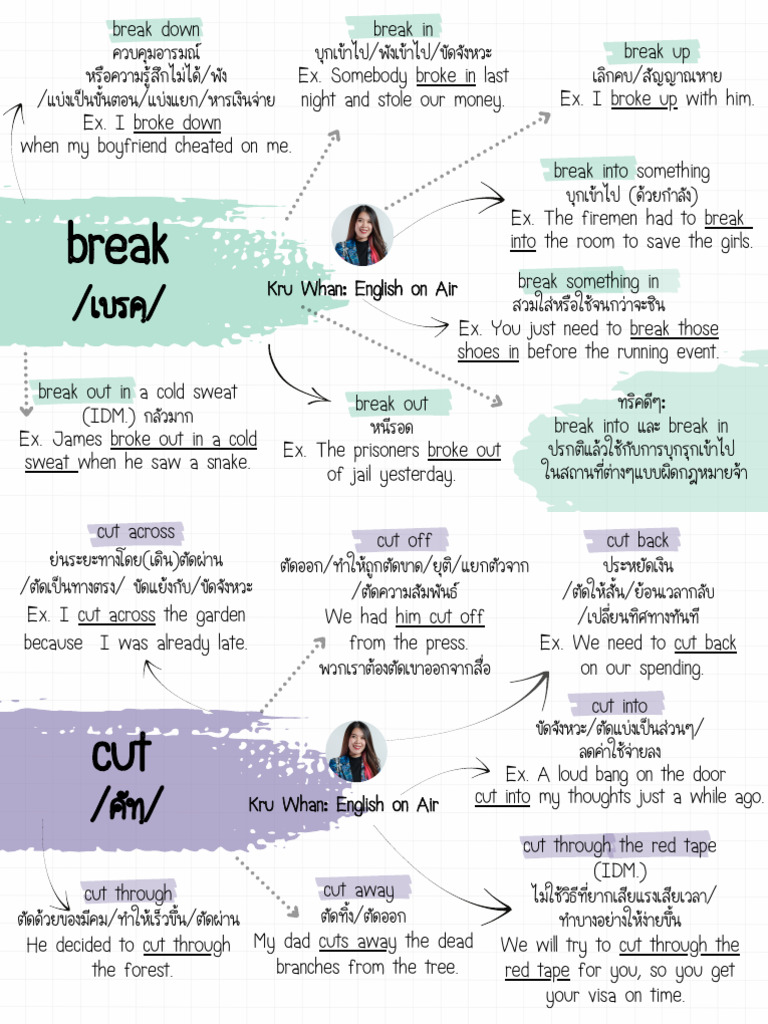 break down
ควบคุมอารมณ์
หรือความรู้สึกไม่ได้/พัง
/แบ่งเป็นขั้นตอน/แบ่งแยก/หารเงินจ่าย
Ex. I broke down
when my boyfriend cheated on me.
break in
บุกเข้าไป/พังเข้าไป/ขัดจังหวะ
Ex. Somebody broke in last
night and stole our money.
break up
เลิกคบ/สัญญาณหาย
Ex. I broke up with him.
break into something
บุกเข้าไป (ด้วยกำลัง)
Ex. The firemen had to break
into the room to save the girls.
break
/เบรคฺ/
Kru Whan: English on Air
break something in
สวมใส่หรือใช้จนกว่าจะชิน
Ex. You just need to break those
shoes in before the running event.
break out in a cold sweat
(IDM.) กลัวมาก
Ex. James broke out in a cold
sweat when he saw a snake.
break out
หนีรอด
Ex. The prisoners broke out
of jail yesterday.
ทริคดีๆ:
break into และ break in
ปรกติแล้วใช้กับการบุกรุกเข้าไป
ในสถานที่ต่างๆแบบผิดกฎหมายจ้า
cut across
ย่นระยะทางโดย(เดิน)ตัดผ่าน
/ตัดเป็นทางตรง/ ขัดแย้งกับ/ขัดจังหวะ
Ex. I cut across the garden
because I was already late.
cut off
ตัดออก/ทำให้ถูกตัดขาด/ยุติ/แยกตัวจาก
/ตัดความสัมพันธ์
We had him cut off
from the press.
พวกเราต้องตัดเขาออกจากสื่อ
cut back
ประหยัดเงิน
/ตัดให้สั้น/ย้อนเวลากลับ
/เปลี่ยนทิศทางทันที
Ex. We need to cut back
on our spending.
cut
/คัทฺ/
Kru Whan: English on Air
cut into
ขัดจังหวะ/ตัดแบ่งเป็นส่วนๆ/
ลดค่าใช้จ่ายลง
Ex. A loud bang on the door
cut into my thoughts just a while ago.
cut through
ตัดด้วยของมีคม/ทำให้เร็วขึ้น/ตัดผ่าน
He decided to cut through
the forest.
cut away
ตัดทิ้ง/ตัดออก
My dad cuts away the dead
branches from the tree.
cut through the red tape
(IDM.)
ไม่ใช้วิธีที่ยากเสียแรงเสียเวลา/
ทำบางอย่างให้ง่ายขึ้น
We will try to cut through the
red tape for you, so you get
your visa on time.